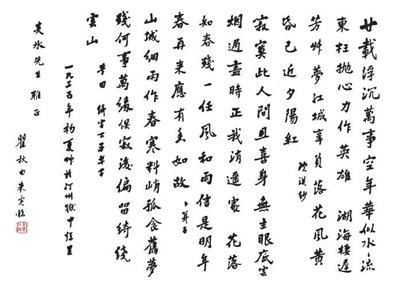 廿載浮沉萬事空年華似水水流
東枉拋心力作英雄 湖海棲遲
芳艸夢江城辜負落花風黃
昏已近夕陽紅 浣溪紗
寂寞此人間且喜身無主眼底雲
煙過盡時正我逍遙處 花落
知春殘一任風和雨信是明年
春再來應有香如故 卜算子
山城細雨作春寒料峭孤衾舊夢
殘何事萬緣俱寂後偏留綺
雲山
一九三五年初夏 於汀州獄中
先生雅正
瞿秋白